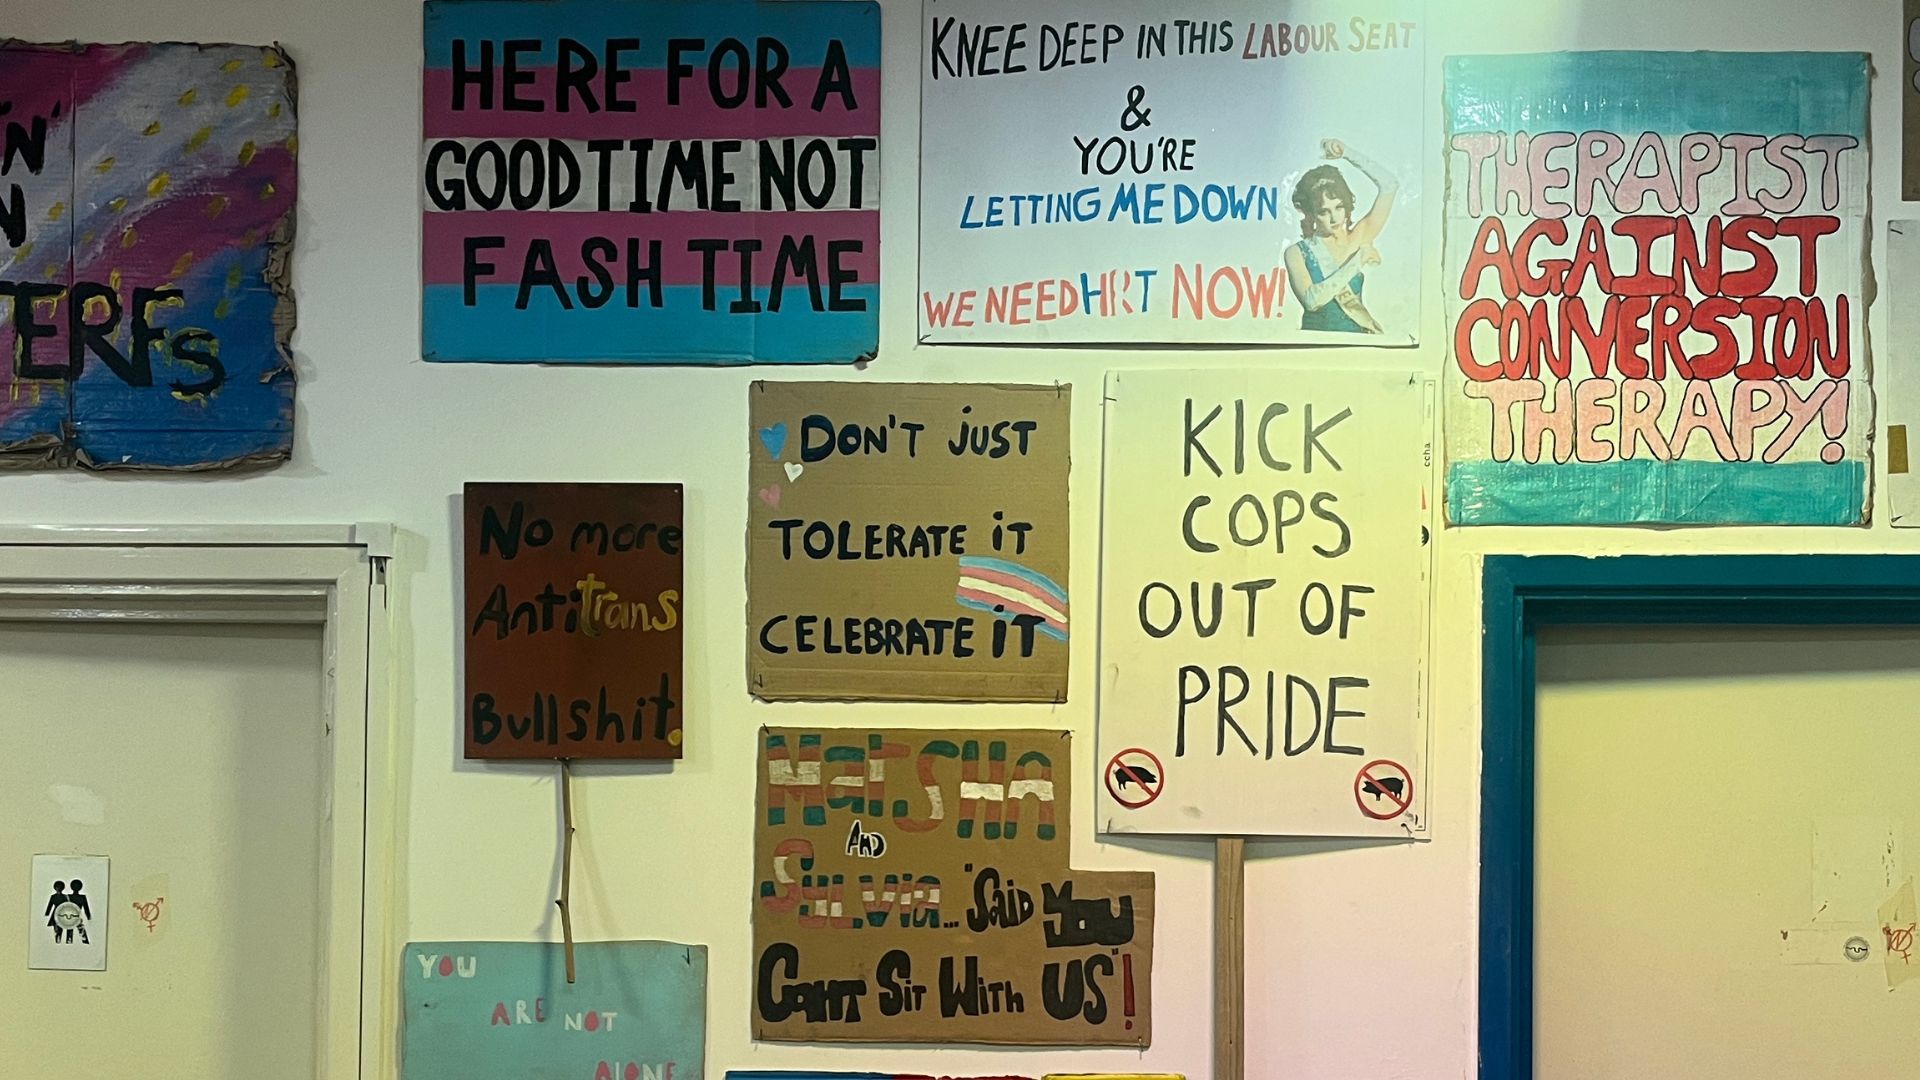 N'
N
ERFs
HERE FOR A
GOOD TIME NOT
FASH TIME
KNEE DEEP IN THIS LABOUR SEAT
&
YOU'RE
LETTING ME DOWN
WE NEED HRT NOW!
THERAPIST
AGAINST
CONVERSION
THERAPY!
No more
Antitrans
Bullshit.
DON'T JUST
TOLERATE iT
CELEBRATE iT
KICK
COPS
OUT OF
PRIDE
MarSHA
AND
SyLvia... "Said You
Cant Sit With US"!
YOU
ARE NOT
ALONE